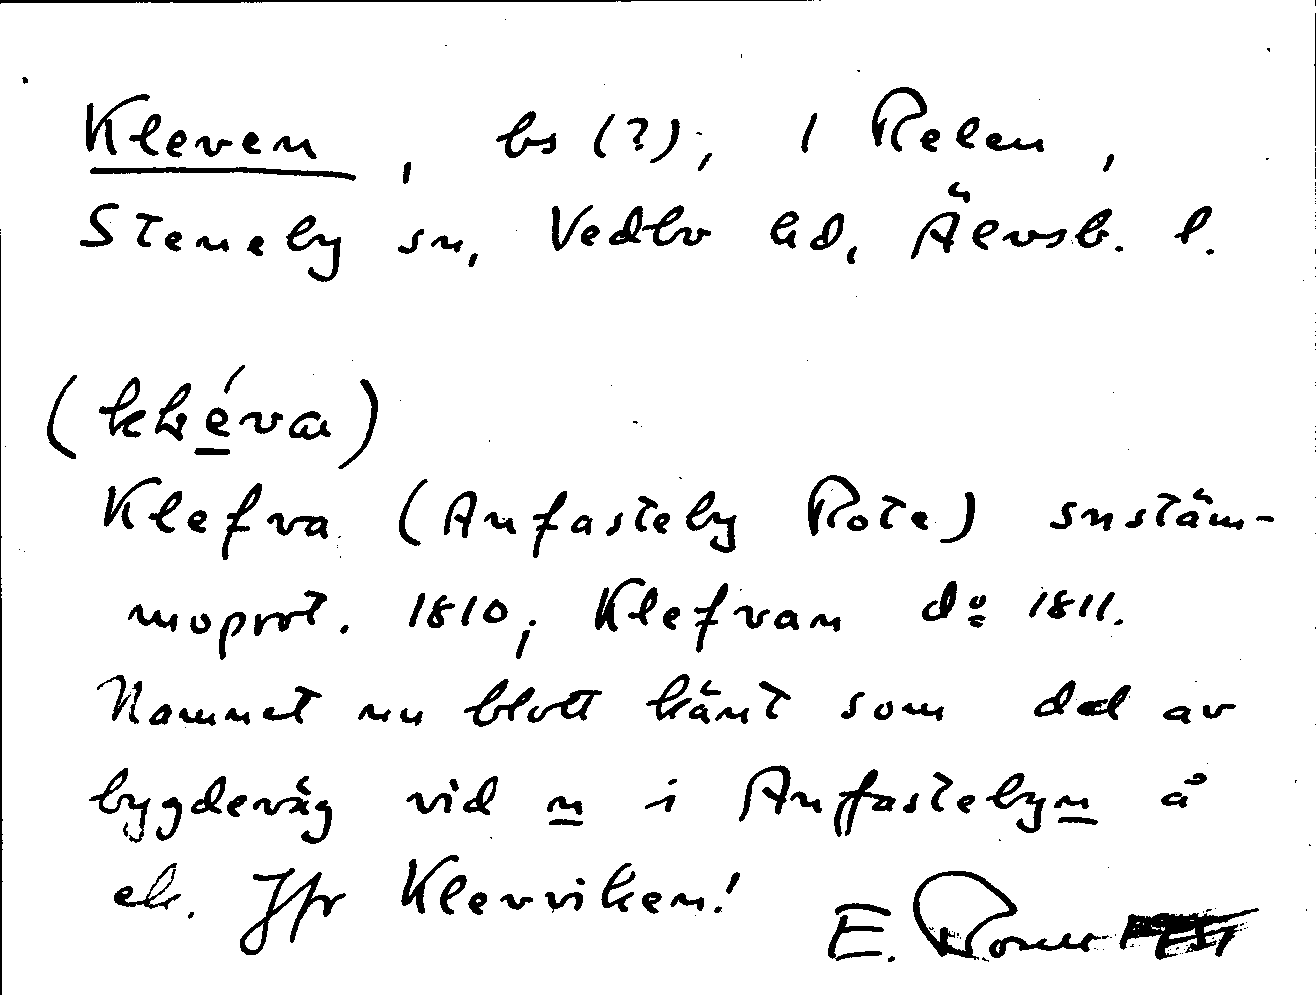 Kleven, bs (?), / Relen,
Steneby sn, Vedbo hd, Älvsb. l.
Klefva (Anfasteby Rote) snstäm-
moprot. 1810; Klefvan d:o 1811.
Namnet nu blott känt som del av
bygdeväg vid n i Anffastebyn å
ek. Jfr Klevviken!
E.